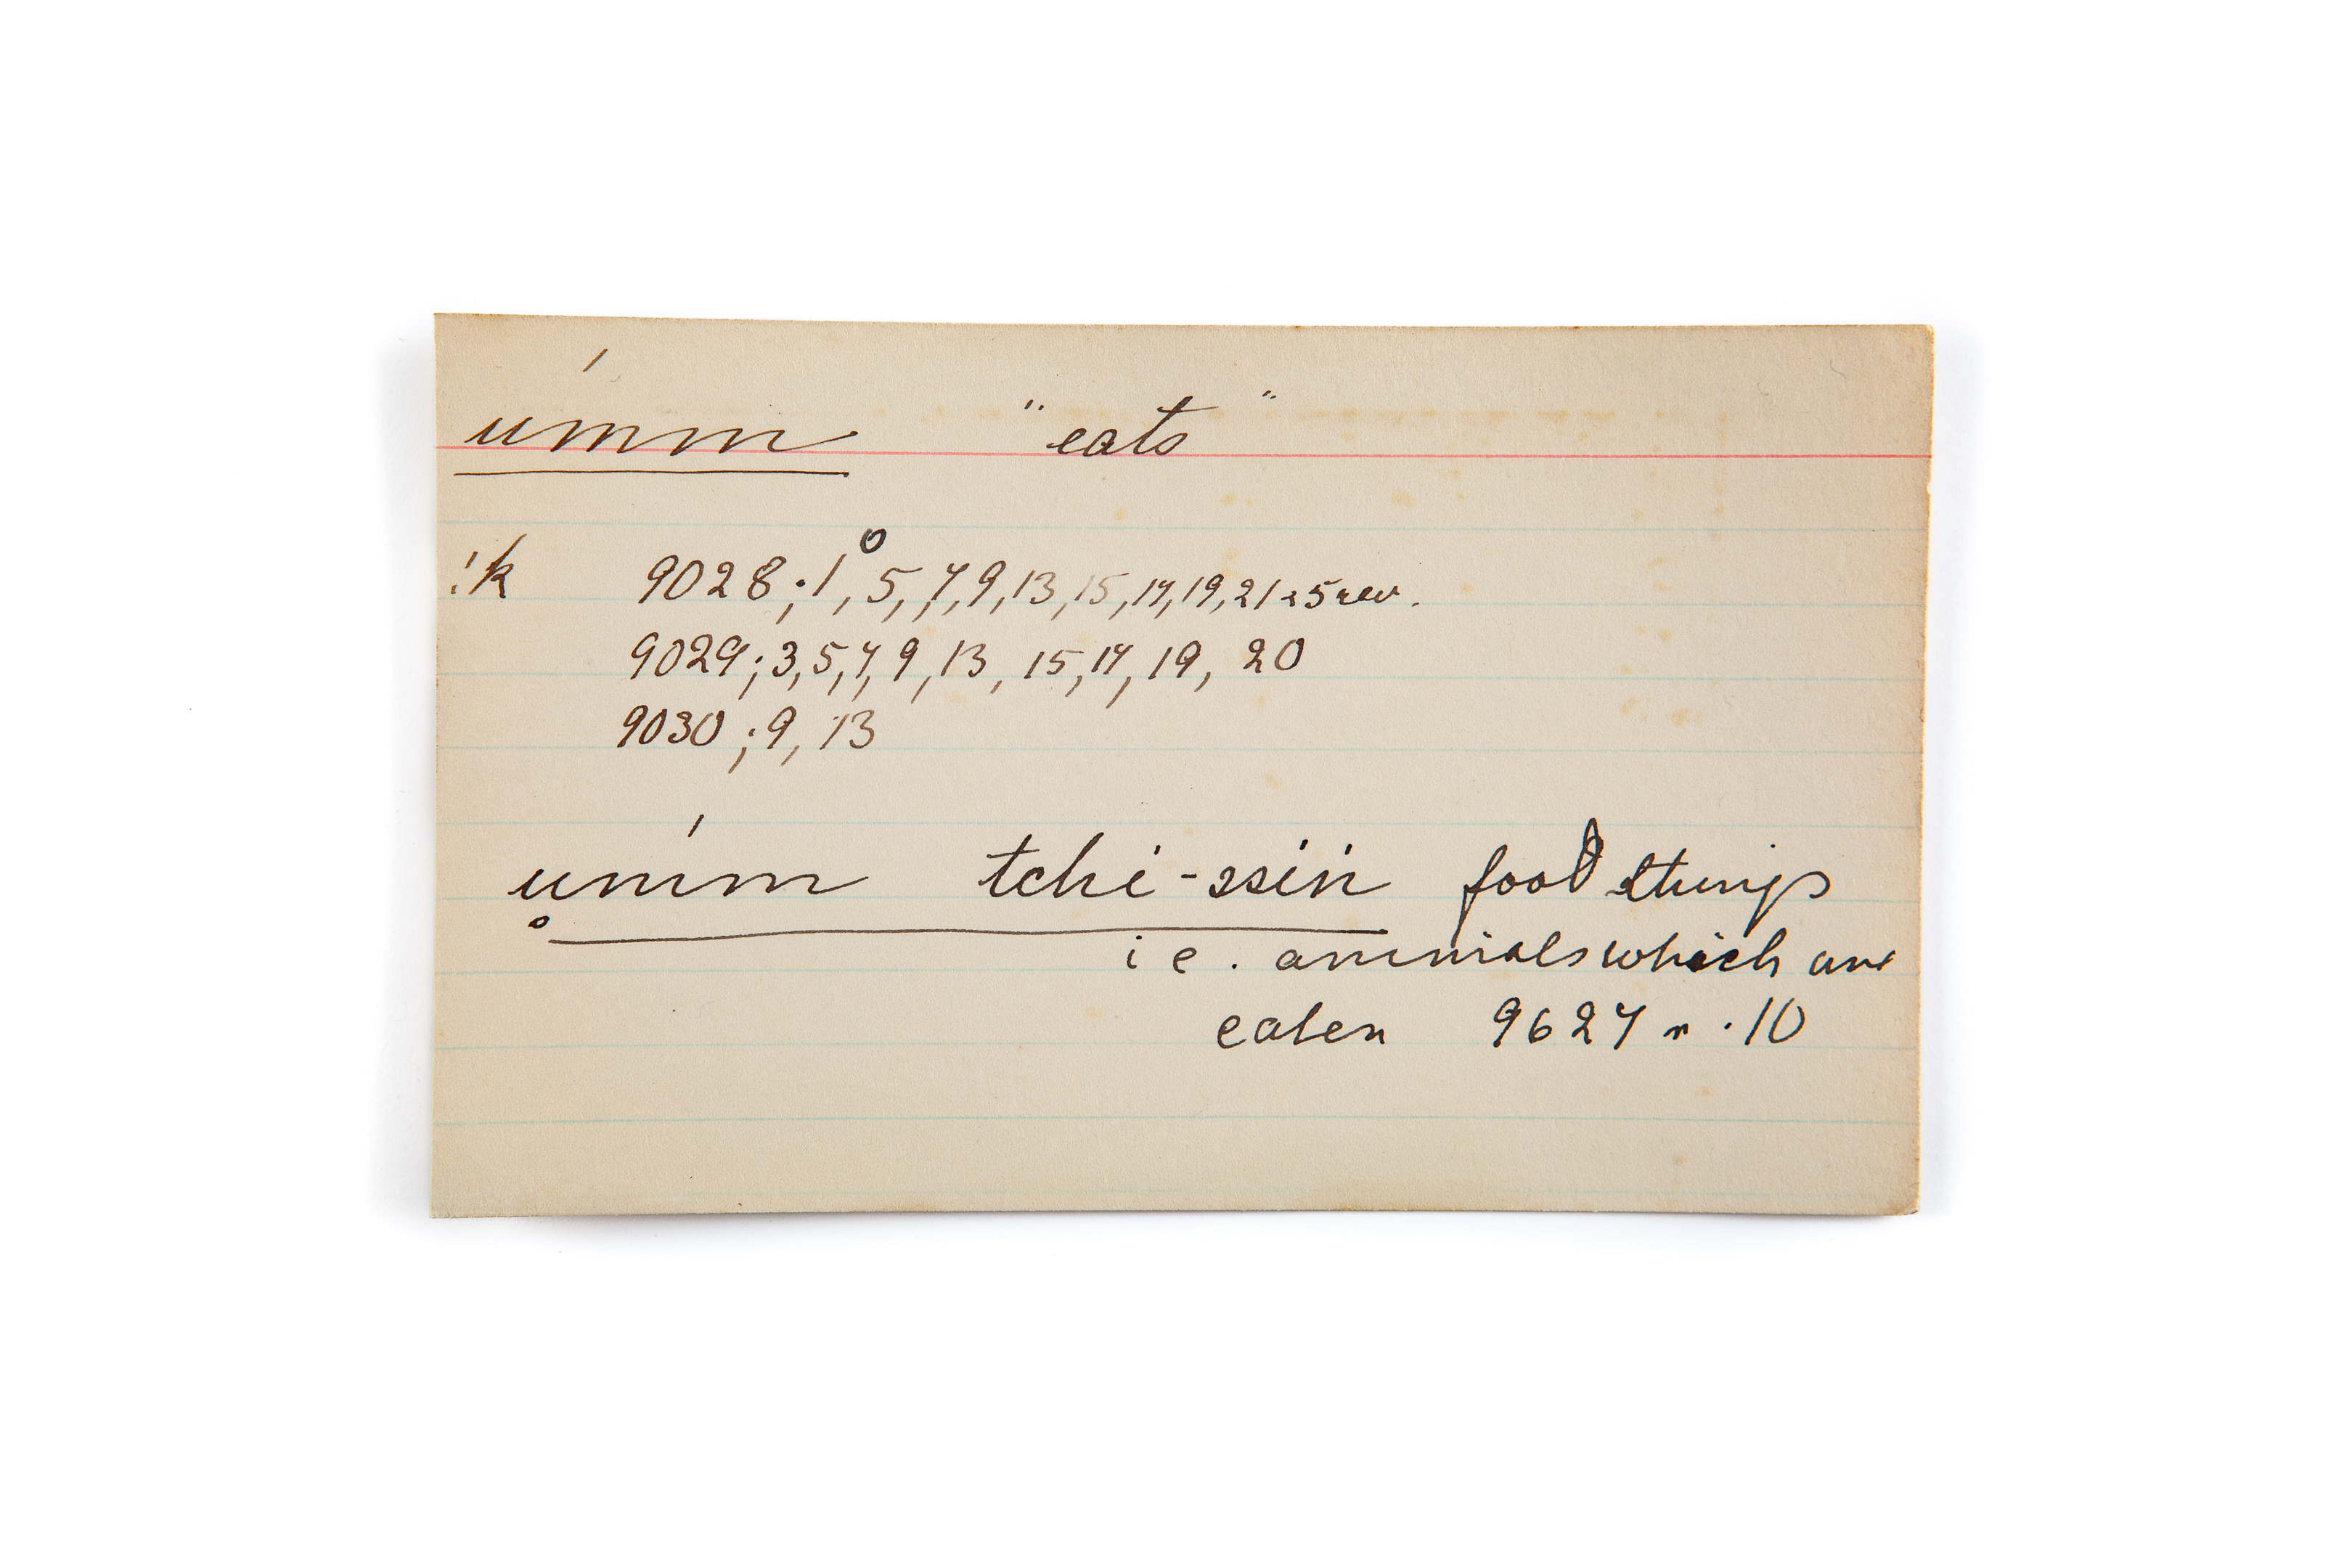 úmm "eats"
!k 9028; 1, 5, 7, 9, 13, 15, 17, 19, 21 25 rev.
9029; 3, 5, 7, 9, 13, 15, 17, 19, 20
9030; 9, 13
úmm tchi-ssin food things
i e. animals which are
eaten 9627 n. 10